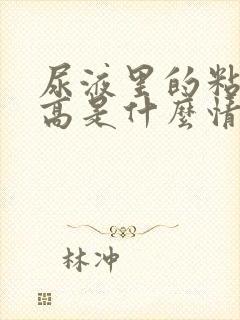 尿液里的粘
高是什麼情
林冲